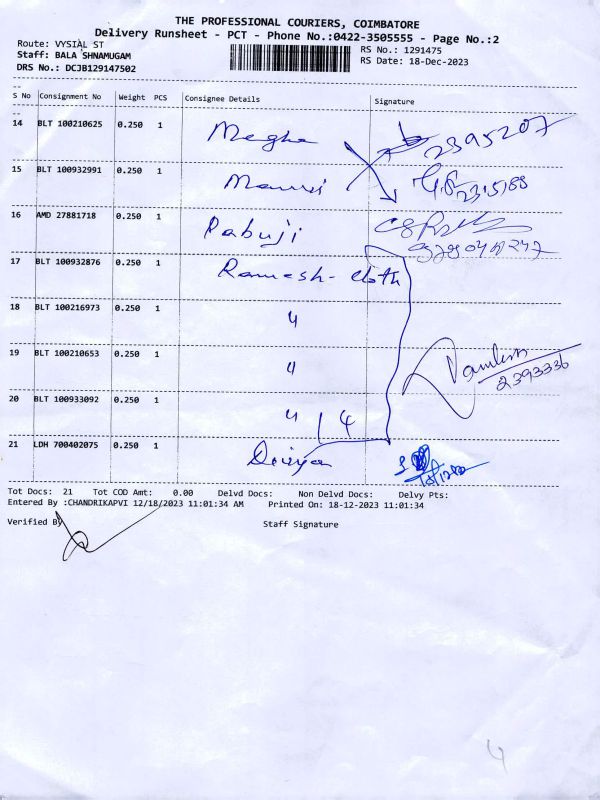 THE PROFESSIONAL COURIERS, COIMBATORE
Delivery Runsheet - PCT - Phone No.:0422-3505555 - Page No.:2
Route: VYSIAL ST
RS No.: 1291475
Staff: BALA SHNAMUGAM
RS Date: 18-Dec-2023
DRS No.: DCJB129147502
S No Consignment No Weight PCS Consignee Details Signature
14 BLT 100210625 0.250 1 Megha 2395207
15 BLT 100932991 0.250 1
16 AMD 27881718 0.250 1 Rabuji
17 BLT 100932876 0.250 1 Ramesh - cloth
18 BLT 100216973 0.250 1 4
19 BLT 100210653 0.250 1 4
2393336
20 BLT 100933092 0.250 1 4 4
21 LDH 700402075 0.250 1 Divya
Tot Docs: 21 Tot COD Amt: 0.00 Delvd Docs: Non Delvd Docs: Delvy Pts:
Entered By :CHANDRIKAPVI 12/18/2023 11:01:34 AM Printed On: 18-12-2023 11:01:34
Verified By Staff Signature
4